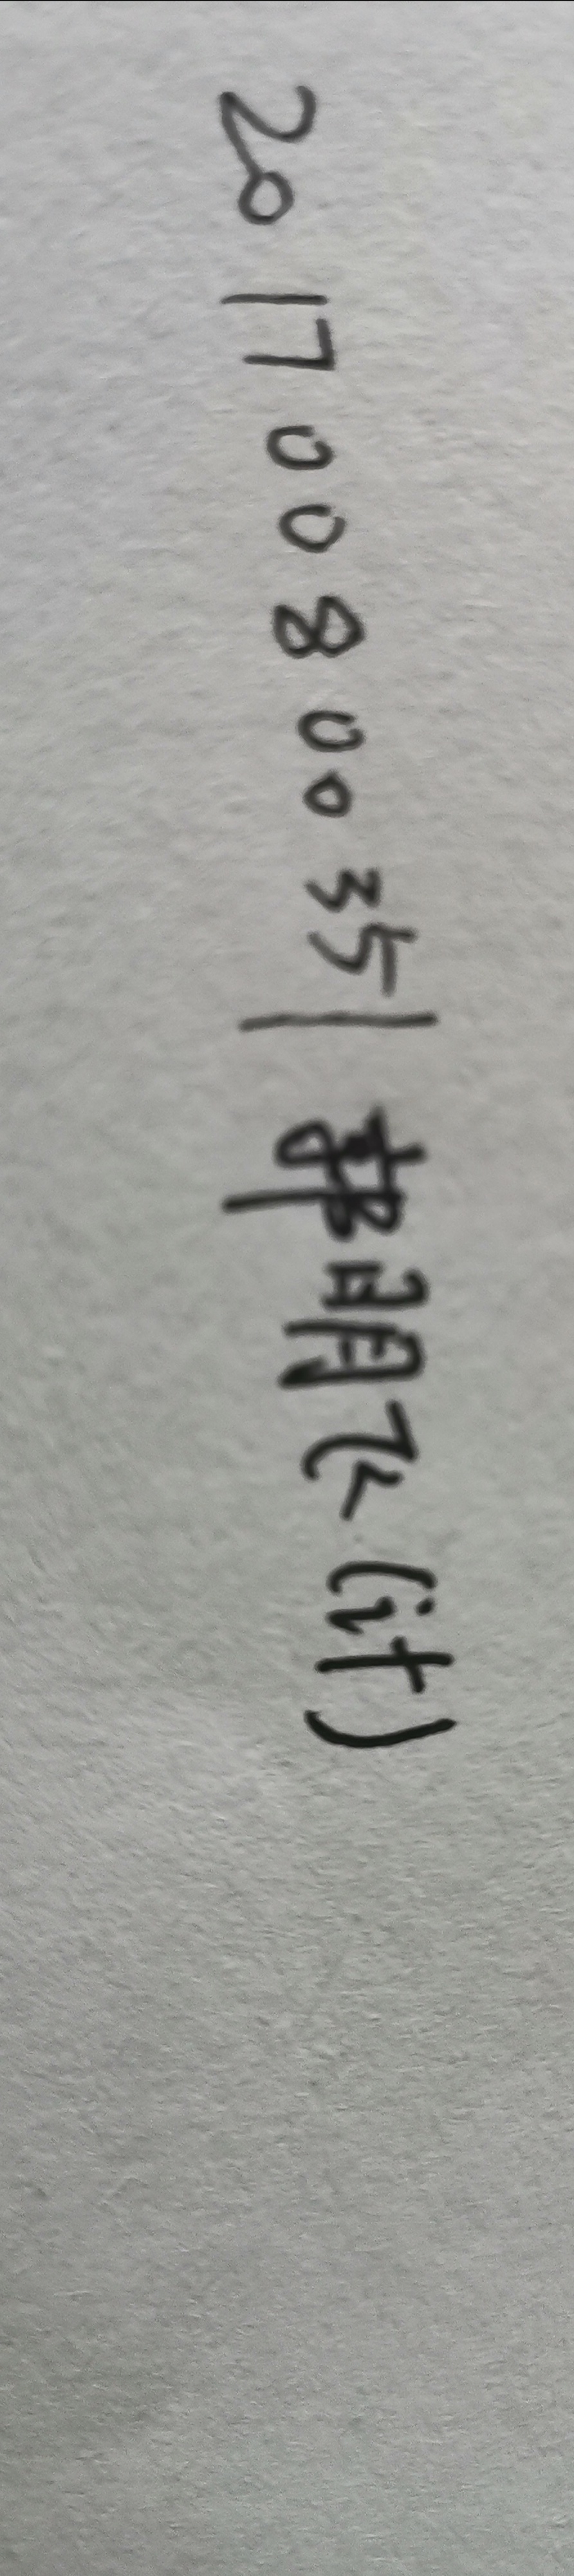 20170080035|郭明飞(it)